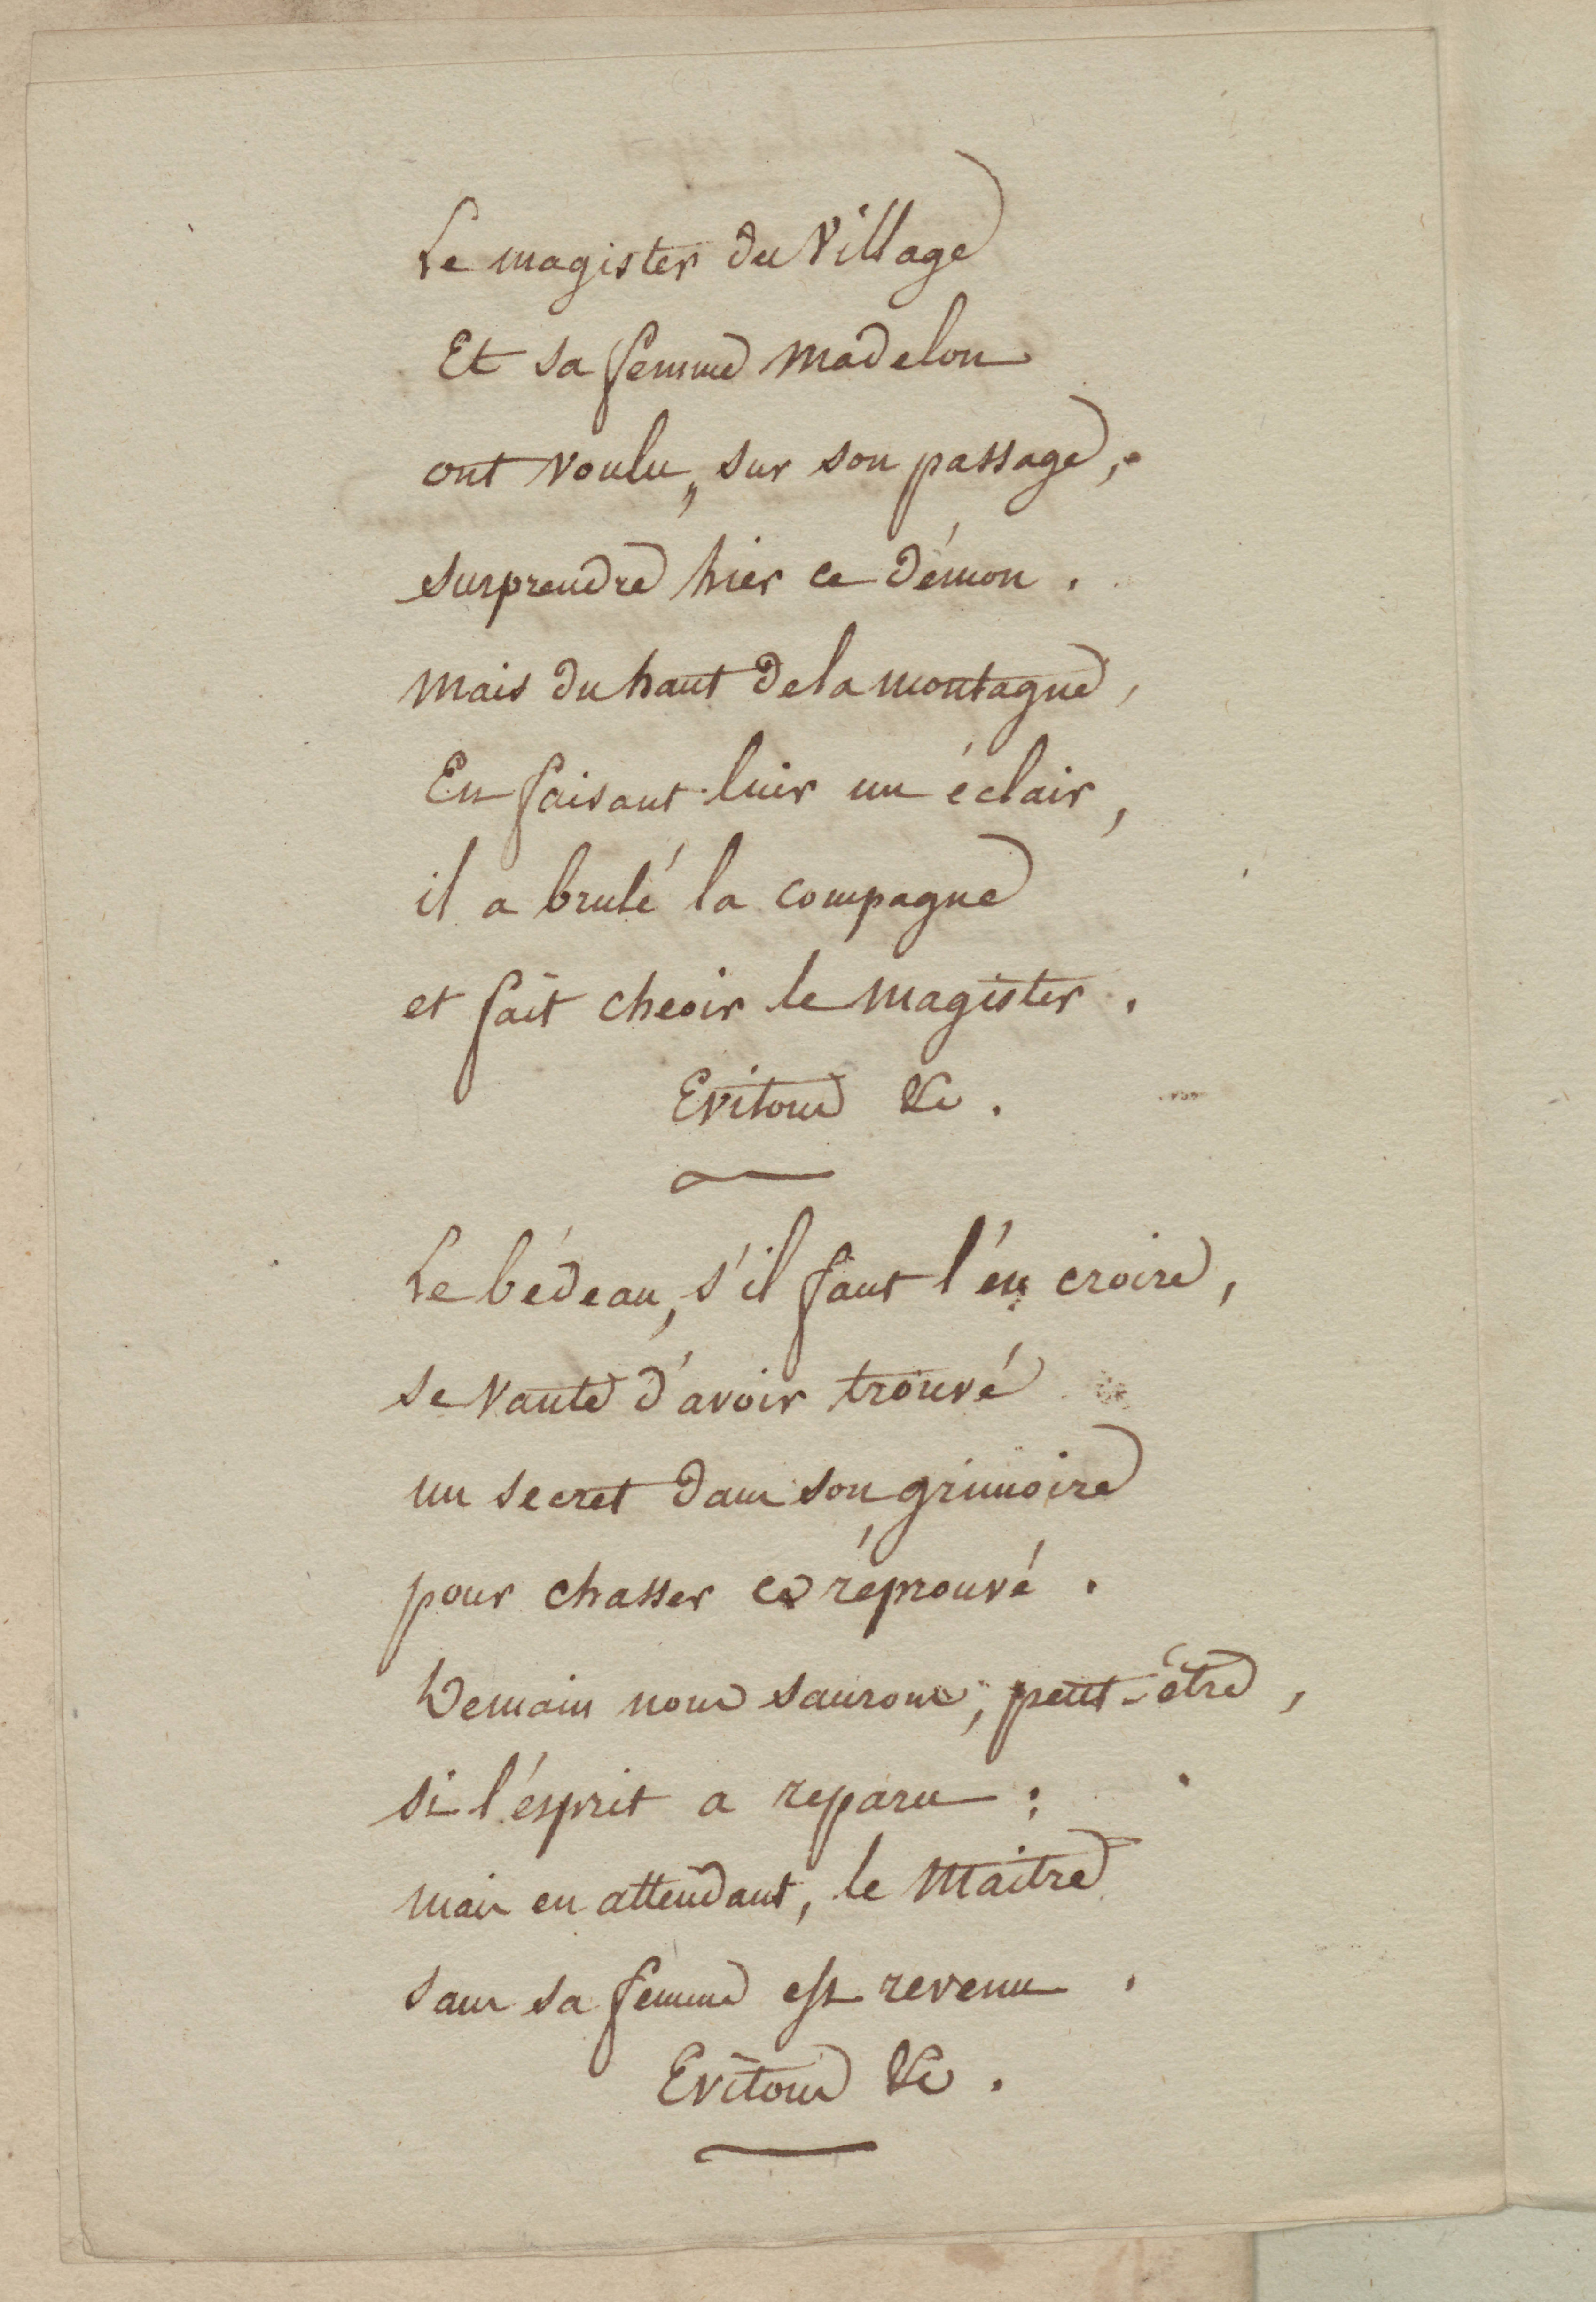 Le magister du Village
Et sa femme Madelon
ont voulu, sur son passage,
surprendre hier ce démon.
Mais du haut de la montagne,
En faisant luir un éclair,
il a brulé la compagne
et fait cheoir le magister.
Evitons &c.
Le bédeau, s'il faut l'én croire,
se vante d'avoir trouvé
un secret dans son grimoire
pour chasser ce réprouvé.
Demain nous saurons, peut-être,
si l'ésprit a reparu :
mais en attendant, le Maitre
sans sa femme est revenu.
Evitons &c.